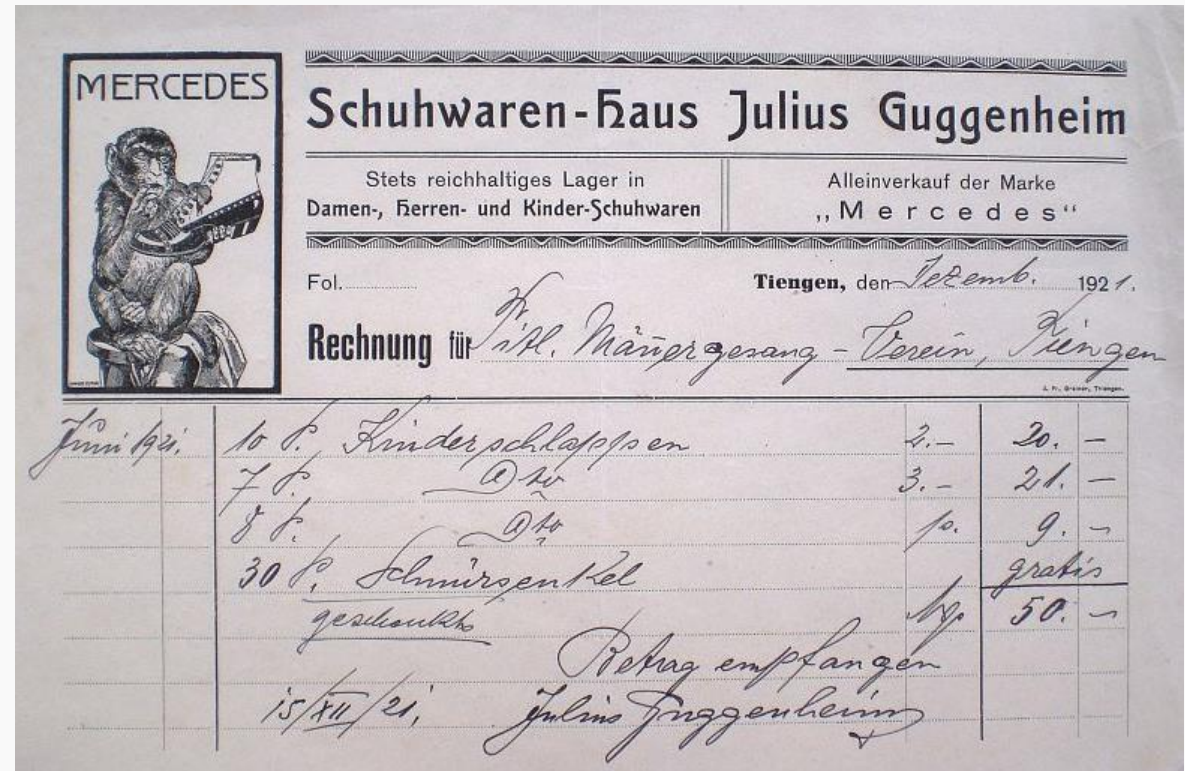 MERCEDES
Schuhwaren-Haus Julius Guggenheim
Stets reichhaltiges Lager in
Damen-, Herren- und Kinder-Schuhwaren
Alleinverkauf der Marke
„Mercedes“
Fol.
Tiengen, den Dezemb. 1921.
Rechnung für Männergesang-Verein, Tiengen
Juni 1921. 10 P. Kinderschlappen 2.- 20. -
7 P. dto 3.- 21. -
8 P. dto p. 9. -
30 P. Schnürsenkel gratis
geschenkt 50. -
Betrag empfangen
15/XII/21. Julius Guggenheim